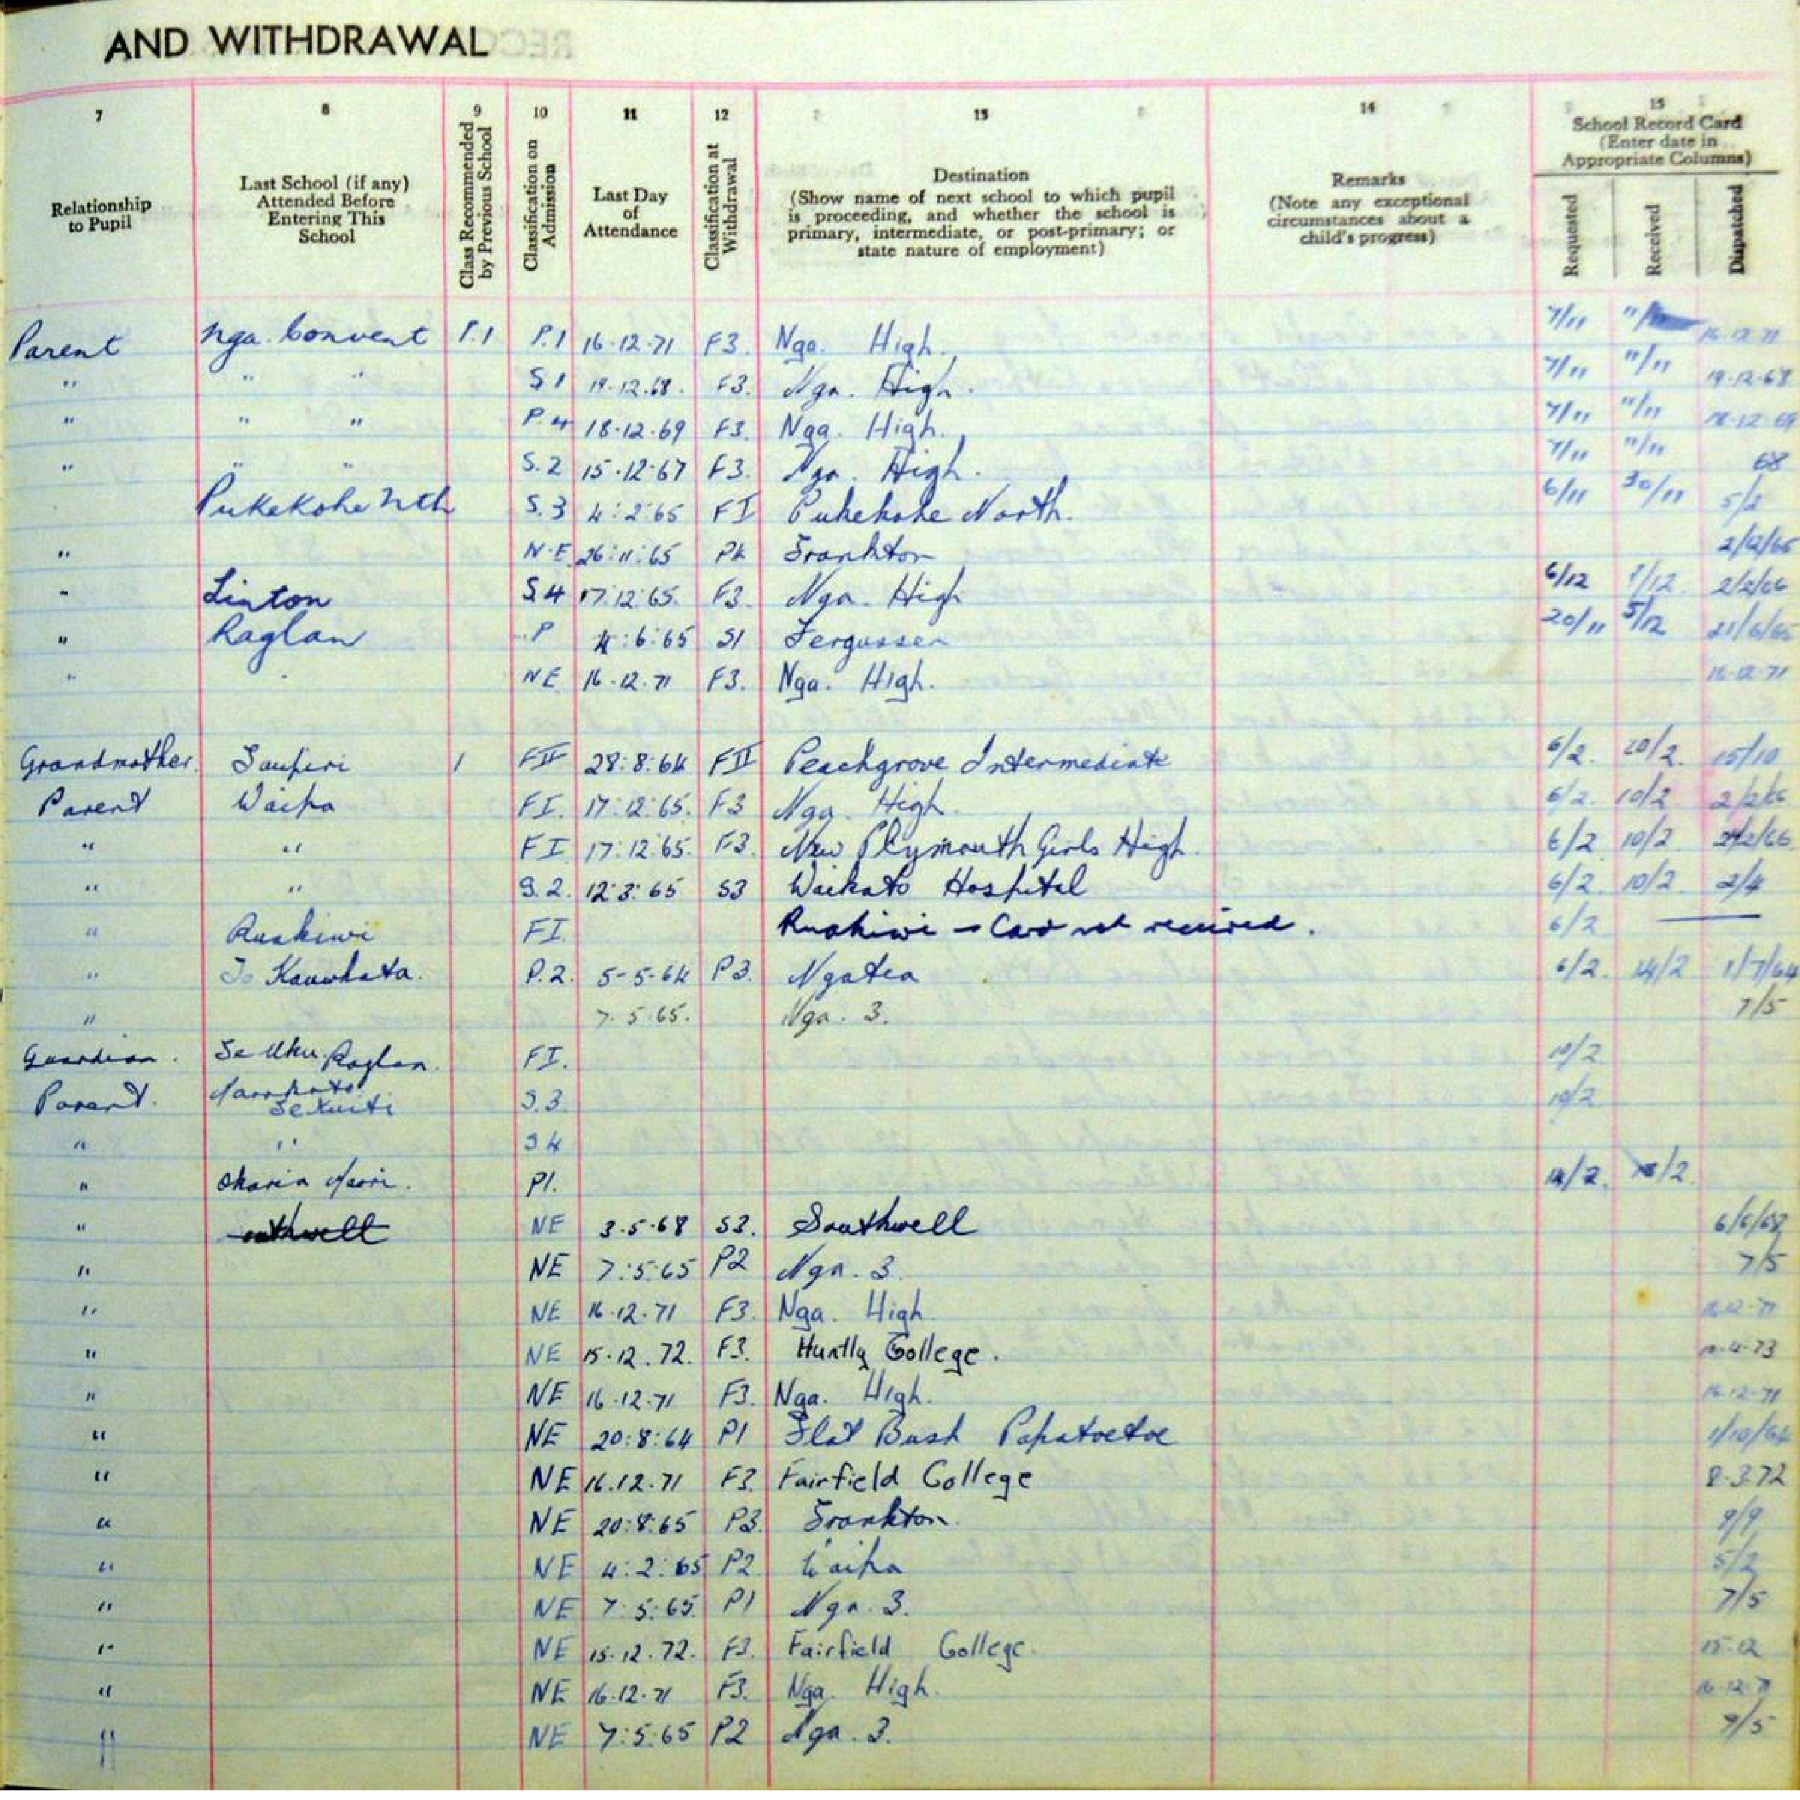 AND WITHDRAWAL
7 8 9 10 11 12 13 14 15
Relationship to Pupil
Last School (if any) Attended Before Entering This School
Class Recommended by Previous School
Classification on Admission
Last Day of Attendance
Classification at Withdrawal
Destination
(Show name of next school to which pupil
is proceeding, and whether the school is
primary, intermediate, or post-primary; or
state nature of employment)
Remarks
(Note any exceptional
circumstances about a
child's progress)
School Record Card
(Enter date in
Appropriate Columns)
Requested Received Dispatched
Parent Nga. Convent P.1 P.1 16-12-71 F3. Nga. High. 7/11 16-12-71
" " " S1 19.12.68. F3. Nga. High. 7/11 "/11 19-12-68
" " " P.4 18.12.69 F3. Nga. High. 7/11 "/11 18-12-69
" " " S.2 15.12.67 F3. Nga. High. 7/11 "/11 68
Pukekohe Nth S.3 4:2:65 FI Pukekohe North. 6/11 30/11 5/2
" N.E. 26:11:65 Frankton
" Linton S4 17:12:65. F3. Nga. High 6/12 2/2/66
" Raglan P 4:6:65 S1 Fergusson 20/11 5/12 21/6/65
" NE 16.12.71 F3. Nga. High. 16.12.71
Grandmother. Taupiri 1 FII 28:8:64 FII Peachgrove Intermediate 6/2. 20/2. 15/10
Parent Waipa FI. 17:12:65. F3 Nga. High. 6/2. 10/2 2/2/66
" " FI 17:12:65. F3. New Plymouth Girls High. 6/2 10/2 2/2/66
" " S.2. 12:3:65 S3 Waikato Hospital 6/2. 10/2 2/4
" Ruakiwi FI. Ruakiwi - Card not received. 6/2
" Te Kauwhata. P.2. 5-5-64 P3. Ngatea 6/2. 14/2 1/7/64
" 7.5.65. Nga. 3. 7/5
Guardian. Te Uku. Raglan. FI. 10/2
Parent. Te Kuiti S.3. 10/2
" " S4
" P1. 14/2.
" NE 3.5.68 S3. Southwell
" NE 7:5:65 P2 Nga. 3. 7/5
" NE 16.12.71 F3. Nga. High 16.12.71
" NE 15.12.72. F3. Huntly College.
" NE 16.12.71 F3. Nga. High. 16.12.71
" NE 20:8:64 P1 Flat Bush Papatoetoe 1/10/64
" NE 16.12.71 F3. Fairfield College 8.3.72
" NE 20:8:65 P3. Frankton. 9/9
" NE 4:2:65 P2 Waipa 5/2
" NE 7:5:65. P1 Nga. 3. 7/5
" NE 15.12.72. F3. Fairfield College. 15.12
" NE 16.12.71 F3. Nga. High. 16.12.71
" NE 7:5:65 P2 Nga. 3. 7/5